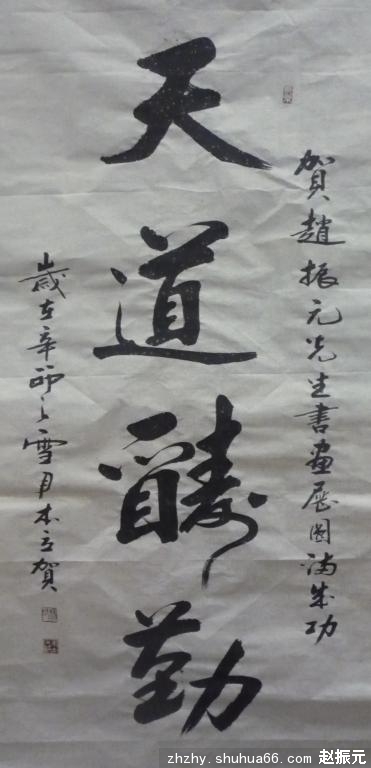 賀趙振元先生書畫展圓滿成功
天道醻勤
歲在辛卯之雪月本立賀
zhzhy.shuhua66.com 赵振元